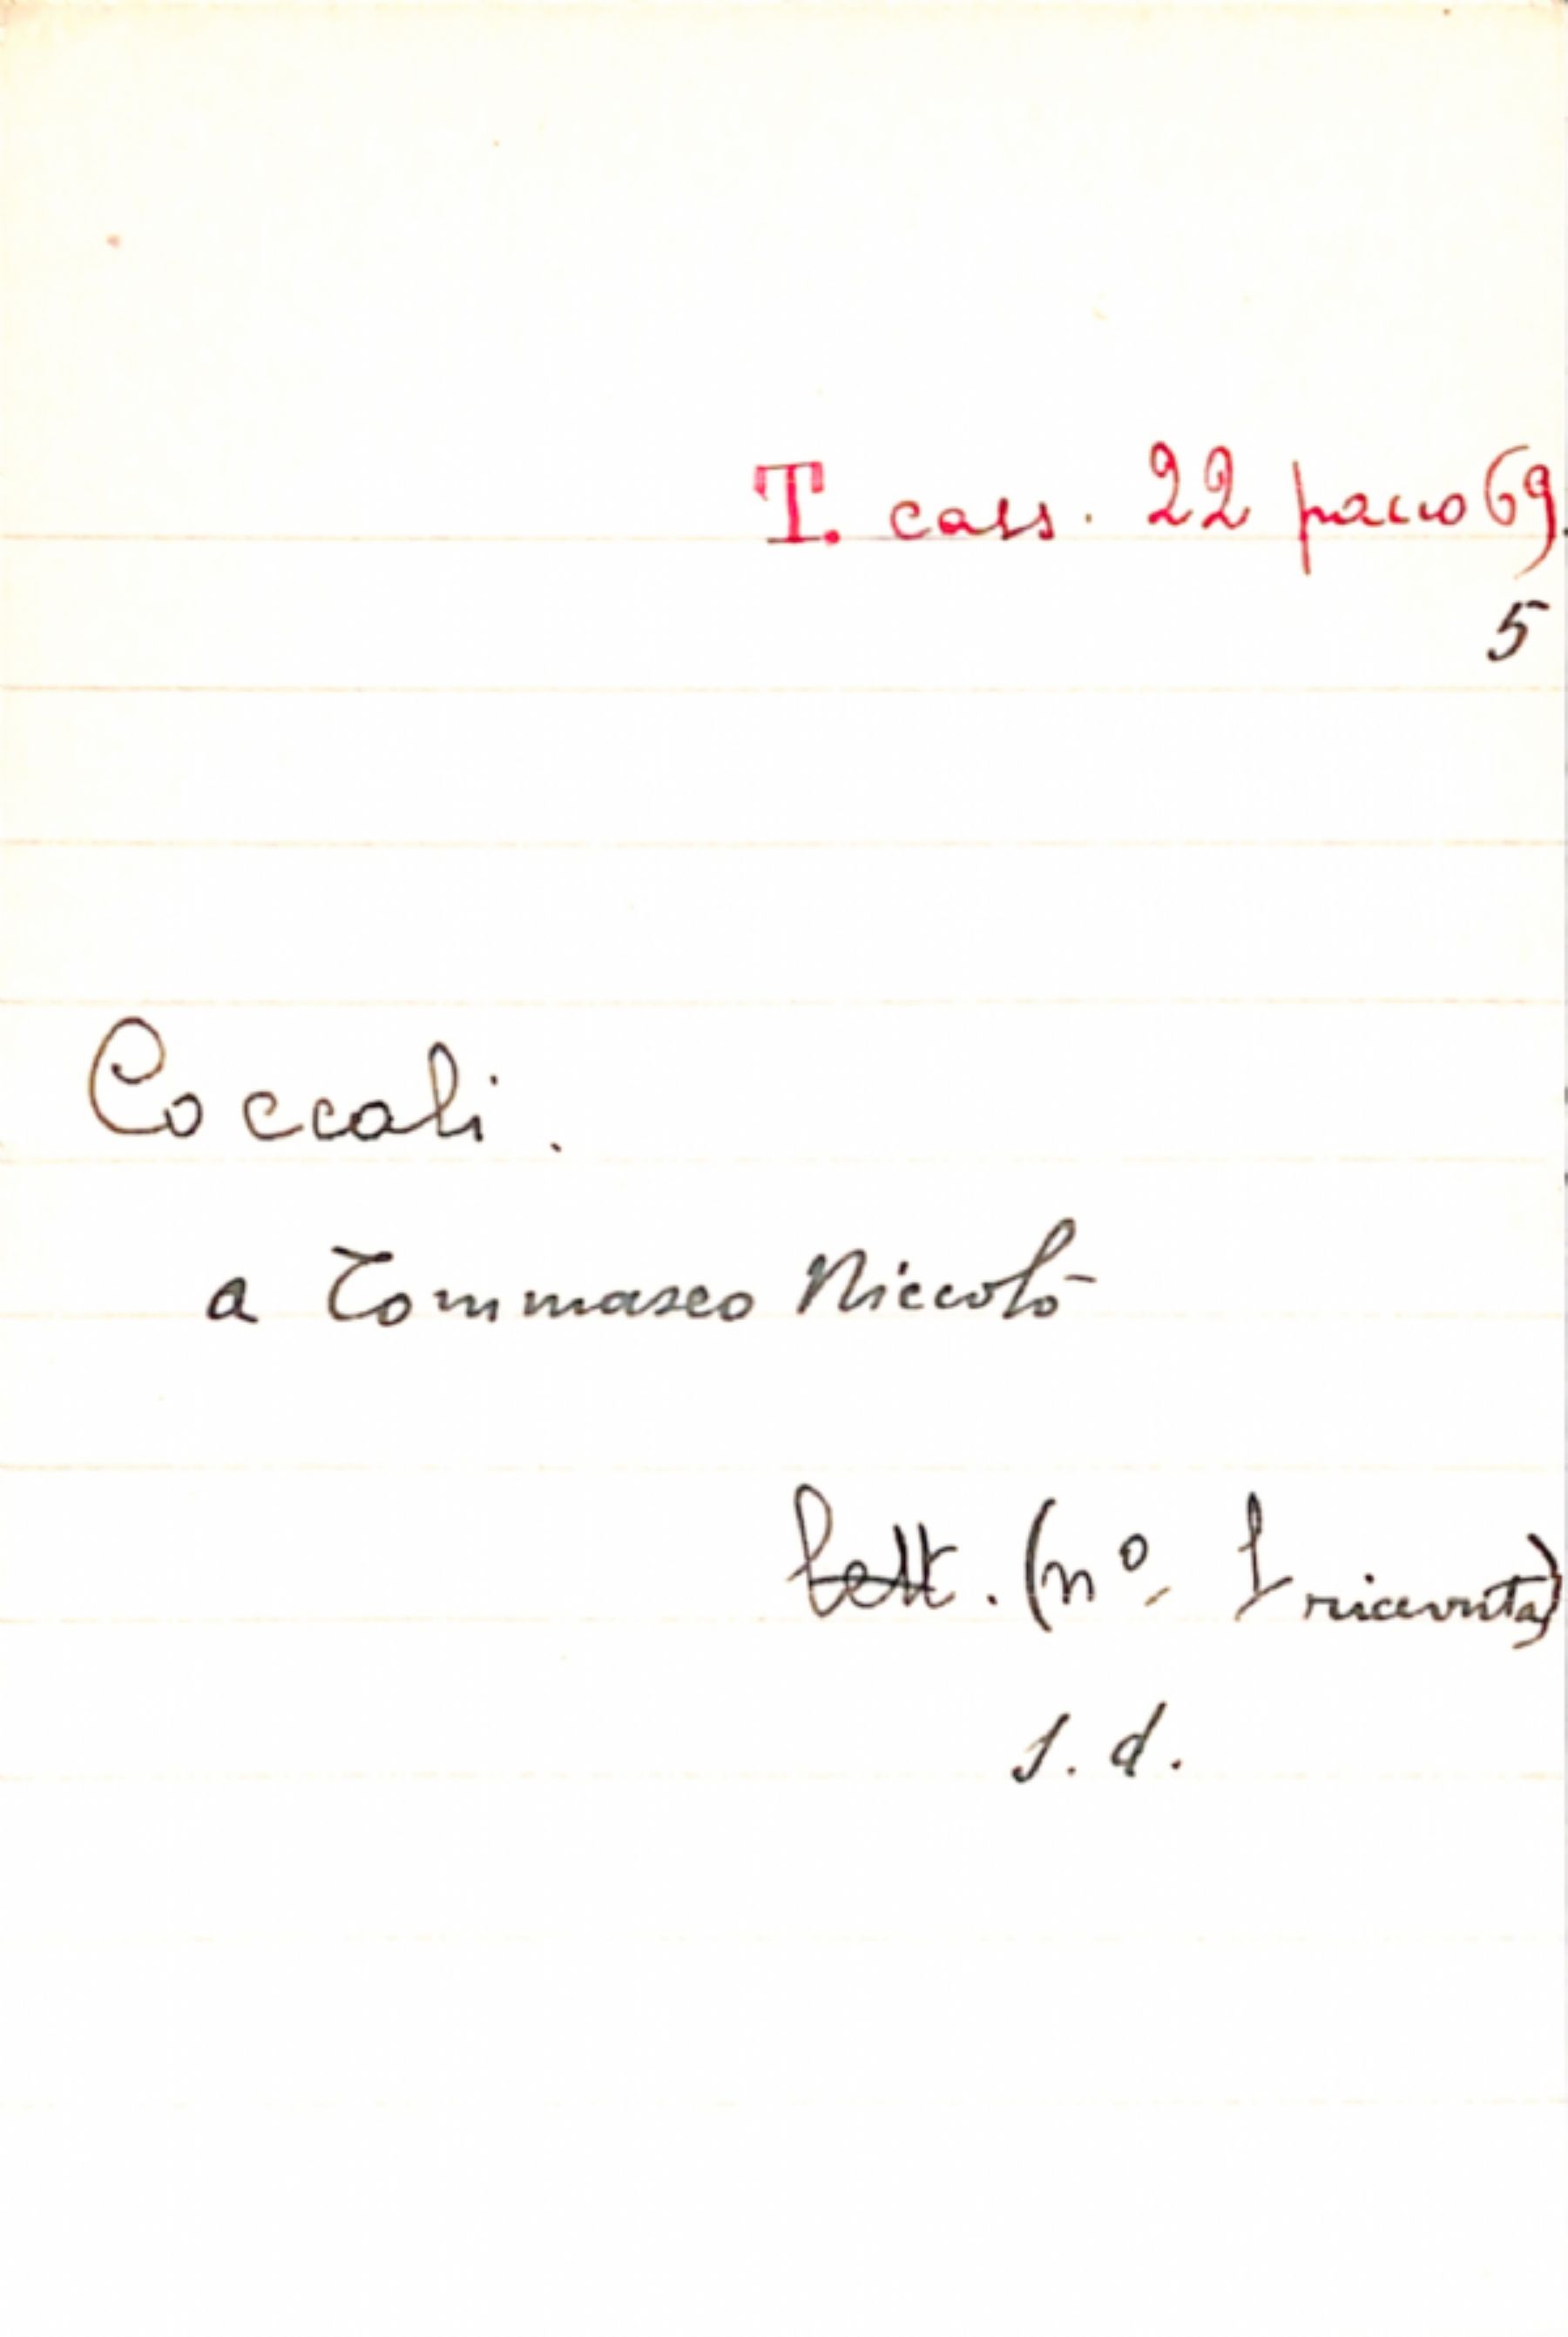 T. cass. 22 pacco 69.
5
Coccali.
a Tommaseo Niccolò
lett. (nº 1 ricevuta)
s. d.